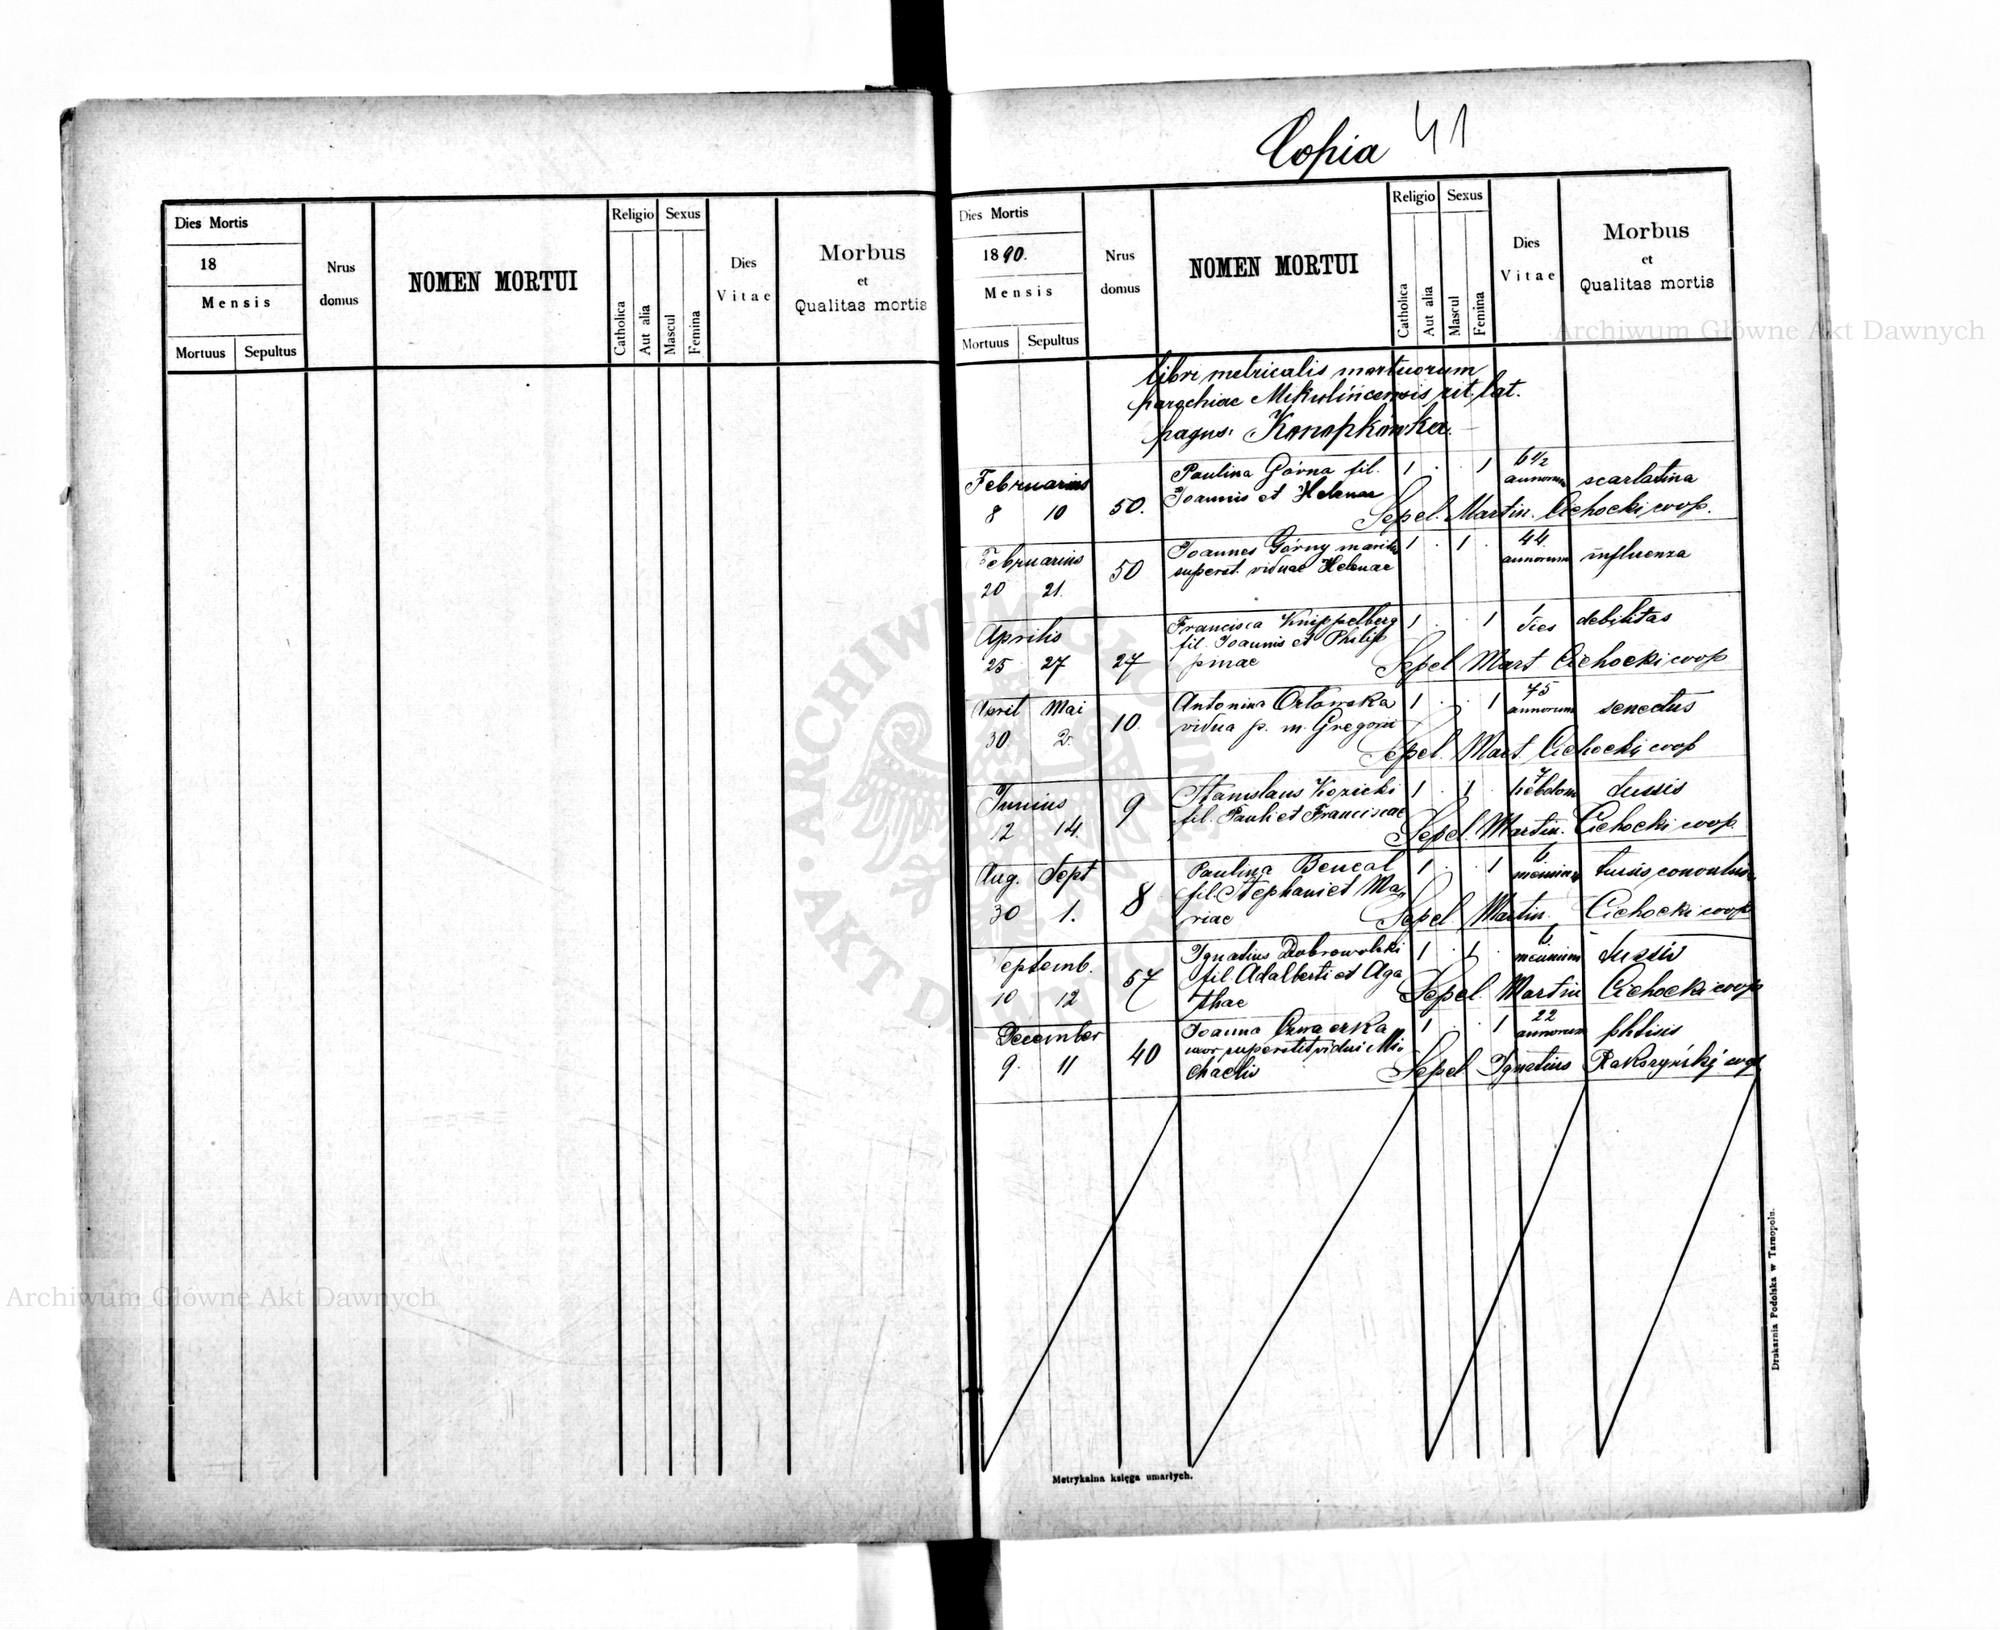 Copia 41
Dies Mortis
18
Mensis
Mortuus Sepultus
Nrus domus
NOMEN MORTUI
Religio
Catholica
Aut alia
Sexus
Mascul
Femina
Dies Vitae
Morbus
et
Qualitas mortis
Dies Mortis
1890.
Mensis
Mortuus Sepultus
Nrus domus
NOMEN MORTUI
Religio
Catholica
Aut alia
Sexus
Mascul
Femina
Dies Vitae
Morbus
et
Qualitas mortis
libri metricalis mortuorum
parochiae Mikulińcensis rit. lat.
pagus: Konopkówka.
Februarius 8 10 50. Paulina Górna fil. 1 . . 1 6 1/2 annorum scarlatina
Joannis et Helenae
Sepel. Martin. Cichocki coop.
Februarius 20 21. 50 Joannes Górny maritus 1 . 1 . 44 annorum influenza
superst. viduae Helenae
Aprilis 25 27 27 Francisca Knippelberg 1 . . 1 1 dies debilitas
fil. Joannis et Philip
pinae
Sepel Mart Cichocki coop
April Mai 30. 2. 10. Antonina Orłowska 1 . . 1 75 annorum senectus
vidua p. m. Gregorii
Sepel. Mart. Cichocki coop
Junius 12 14. 9 Stanislaus Kozicki 1 . 1 . 7 hebdom tussis
fil. Pauli et Franciscae
Sepel. Martin. Cichocki coop.
Aug. Sept 30 1. 8 Paulina Bencal 1 . . 1 6 mensium tussis convulsiva
fil. Stephani et Ma
riae
Sepel Martin. Cichocki coop
Septemb. 10 12 57 Ignatius Dobrowolski 1 . 1 . 6 mensium tussis
fil. Adalberti et Aga
thae
Sepel. Martin Cichocki coop
December 9. 11 40 Joanna 1 . . 1 22 annorum phtisis
uxor superstit vidui Mi
chaelis
Sepel Ignatius coop
Metrykalna księga umarłych.
Drukarnia Podolska w Tarnopolu.
Archiwum Główne Akt Dawnych
Archiwum Główne Akt Dawnych
ARCHIWUM GŁÓWNE AKT DAWNYCH